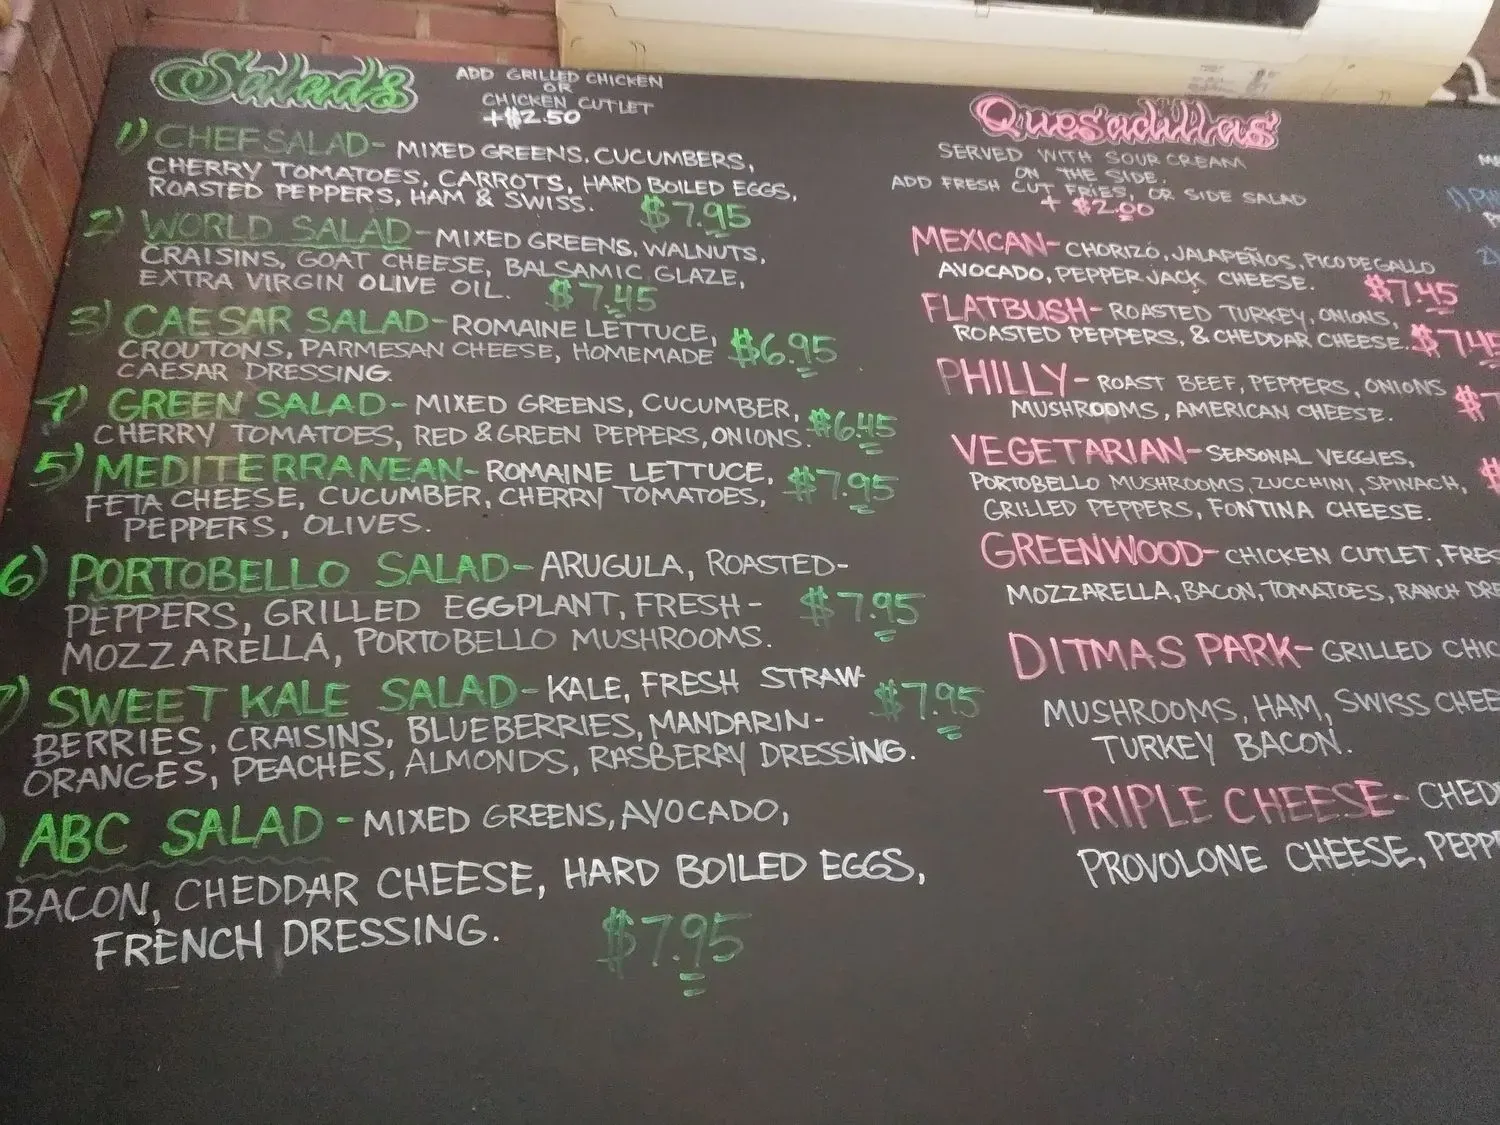 Salads
ADD GRILLED CHICKEN
OR
CHICKEN CUTLET
+$2.50
1) CHEF SALAD- MIXED GREENS. CUCUMBERS,
CHERRY TOMATOES, CARROTS, HARD BOILED EGGS,
ROASTED PEPPERS, HAM & SWISS. $7.95
2) WORLD SALAD- MIXED GREENS, WALNUTS,
CRAISINS, GOAT CHEESE, BALSAMIC GLAZE,
EXTRA VIRGIN OLIVE OIL. $7.45
3) CAESAR SALAD- ROMAINE LETTUCE,
CROUTONS, PARMESAN CHEESE, HOMEMADE $6.95
CAESAR DRESSING.
4) GREEN SALAD- MIXED GREENS, CUCUMBER,
CHERRY TOMATOES, RED & GREEN PEPPERS, ONIONS. $6.45
5) MEDITERRANEAN- ROMAINE LETTUCE,
FETA CHEESE, CUCUMBER, CHERRY TOMATOES, $7.95
PEPPERS, OLIVES.
6) PORTOBELLO SALAD- ARUGULA, ROASTED-
PEPPERS, GRILLED EGGPLANT, FRESH- $7.95
MOZZARELLA, PORTOBELLO MUSHROOMS.
7) SWEET KALE SALAD- KALE, FRESH STRAW- $7.95
BERRIES, CRAISINS, BLUEBERRIES, MANDARIN-
ORANGES, PEACHES, ALMONDS, RASBERRY DRESSING.
ABC SALAD- MIXED GREENS, AVOCADO,
BACON, CHEDDAR CHEESE, HARD BOILED EGGS,
FRENCH DRESSING. $7.95
Quesadillas
SERVED WITH SOUR CREAM
ON THE SIDE.
ADD FRESH CUT FRIES, OR SIDE SALAD
+ $2.00
MEXICAN- CHORIZÓ, JALAPEÑOS, PICO DE GALLO
AVOCADO, PEPPER JACK CHEESE. $7.45
FLATBUSH- ROASTED TURKEY, ONIONS,
ROASTED PEPPERS, & CHEDDAR CHEESE. $7.45
PHILLY- ROAST BEEF, PEPPERS, ONIONS
MUSHROOMS, AMERICAN CHEESE.
VEGETARIAN- SEASONAL VEGGIES,
PORTOBELLO MUSHROOMS, ZUCCHINI, SPINACH,
GRILLED PEPPERS, FONTINA CHEESE.
GREENWOOD- CHICKEN CUTLET, FRES
MOZZARELLA, BACON, TOMATOES, RANCH DRE
DITMAS PARK- GRILLED CHIC
MUSHROOMS, HAM, SWISS CHEE
TURKEY BACON.
TRIPLE CHEESE- CHED
PROVOLONE CHEESE, PEPP